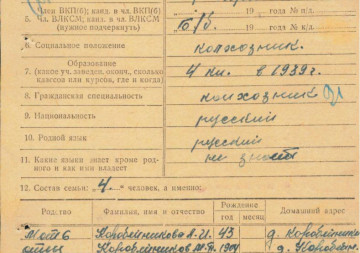 Член ВКП(б); канд. в чл. ВКП(б) 19 года № п/к.
5. Чл. ВЛКСМ; канд. в чл. ВЛКСМ б/п
(нужное подчеркнуть) 19 года № к/д.
6. Социальное положение колхозник.
Образование
7. (какое уч. заведен. оконч., сколько классов или курсов, где и когда) 4 кл. в 1939 г.
8. Гражданская специальность колхозник
9. Национальность русский
10. Родной язык русский
11. Какие языки знает кроме родного и как ими владеет не знает
12. Состав семьи: 4 человек, а именно:
Родство Фамилия, имя и отчество Рождение Домашний адрес
год месяц
Мать Коробейникова А. И. 43 д. Коробейн.
отец Коробейников М. 1904 д. Коробейн.